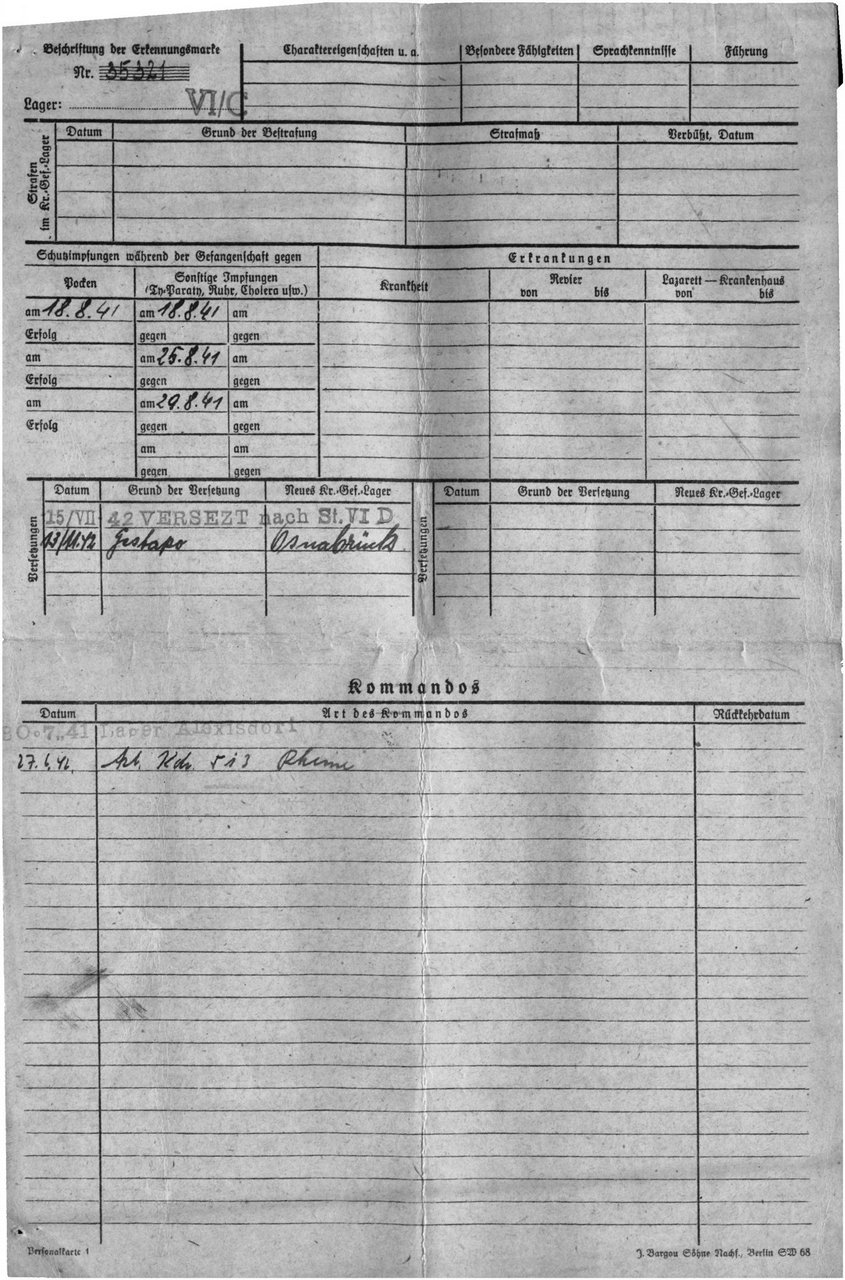 Beschriftung der Erkennungsmarke
Nr. 35321
Lager: VI/C
Charaktereigenschaften u. a.
Besondere Fähigkeiten
Sprachkenntnisse
Führung
Strafen im Kr.-Gef.-Lager
Datum
Grund der Bestrafung
Strafmaß
Verbüßt, Datum
Schutzimpfungen während der Gefangenschaft gegen
Erkrankungen
Pocken
Sonstige Impfungen
(Ty-Paraty, Ruhr, Cholera usw.)
Krankheit
Revier
von bis
Lazarett — Krankenhaus
von bis
am 18.8.41 am 18.8.41 am
Erfolg gegen gegen
am am 25.8.41 am
Erfolg gegen gegen
am am 29.8.41 am
Erfolg gegen gegen
am am
gegen gegen
Versetzungen
Datum Grund der Versetzung Neues Kr.-Gef.-Lager
15/VII 42 VERSEZT nach St. VI D
13/11.42 Gestapo Osnabrück
Versetzungen
Datum Grund der Versetzung Neues Kr.-Gef.-Lager
Kommandos
Datum Art des Kommandos Rückkehrdatum
30.7.41 Lager Alexisdorf
Arb. Kdo. 513 Rheine
Personalkarte 1
J. Bargou Söhne Nachf., Berlin SW 68